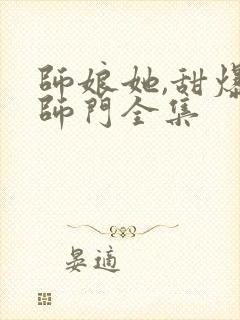 師娘她,甜爆
師門全集
晏適